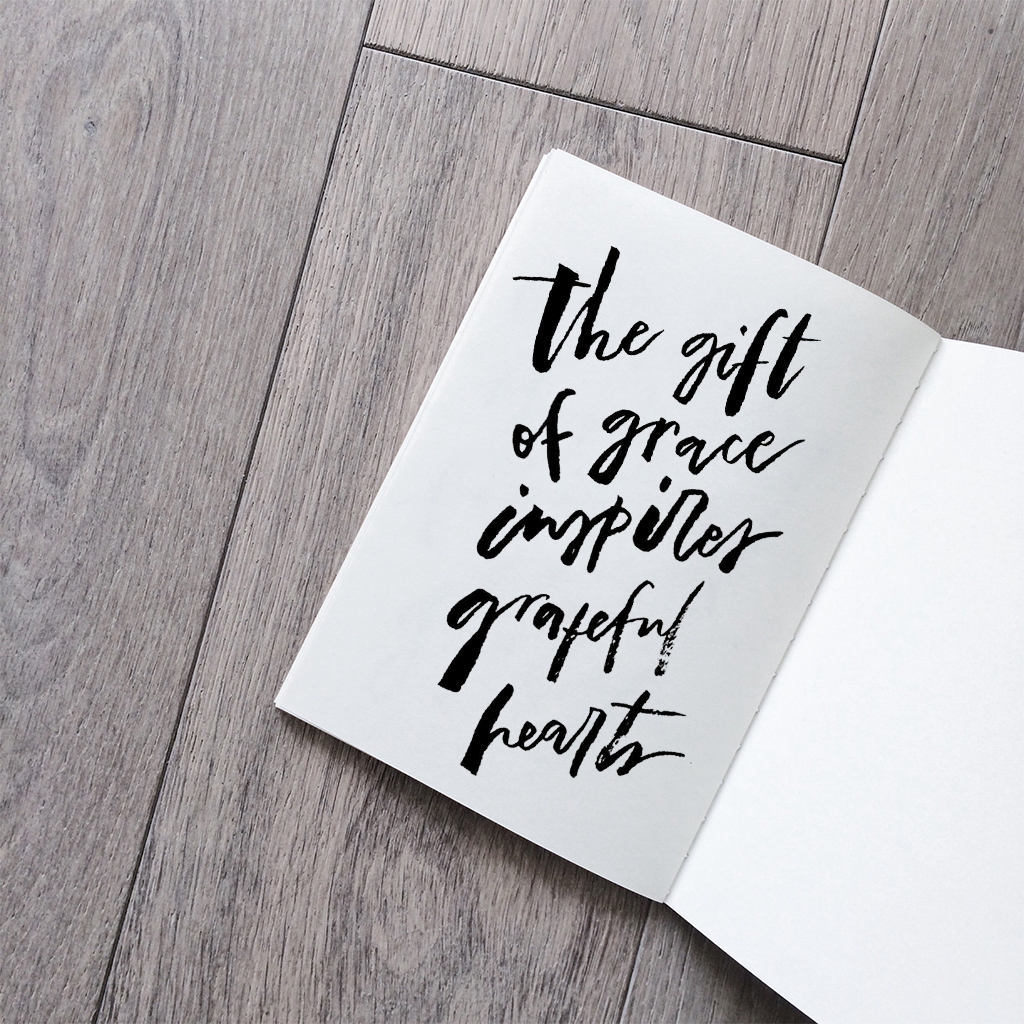 the gift
of grace
inspires
grateful
hearts